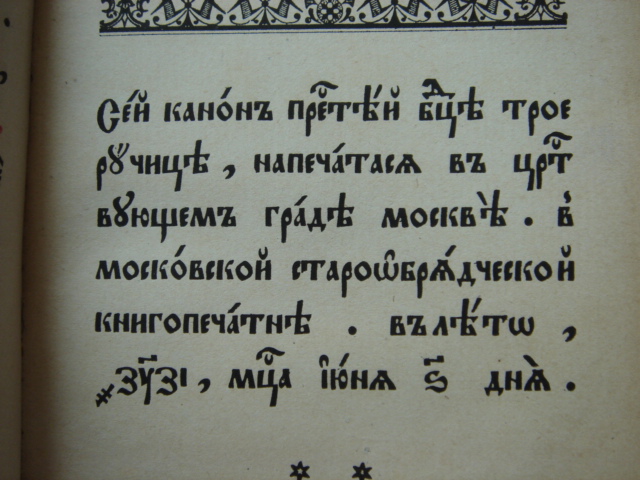 Се́й кано́нъ прⷭ҇тѣ́й бцⷣѣ трое
рꙋчицѣ, напеча́тасѧ въ црⷭ҇т
вꙋющемъ гра́дѣ москвѣ̀. в̾
моско́вской староѡбрѧ́дческой
книгопеча́тнѣ. въ лѣ́тѡ,
҂зу҃зі, мцⷭ҇а і҆ю́нѧ ѕ҃ днѧ̀.